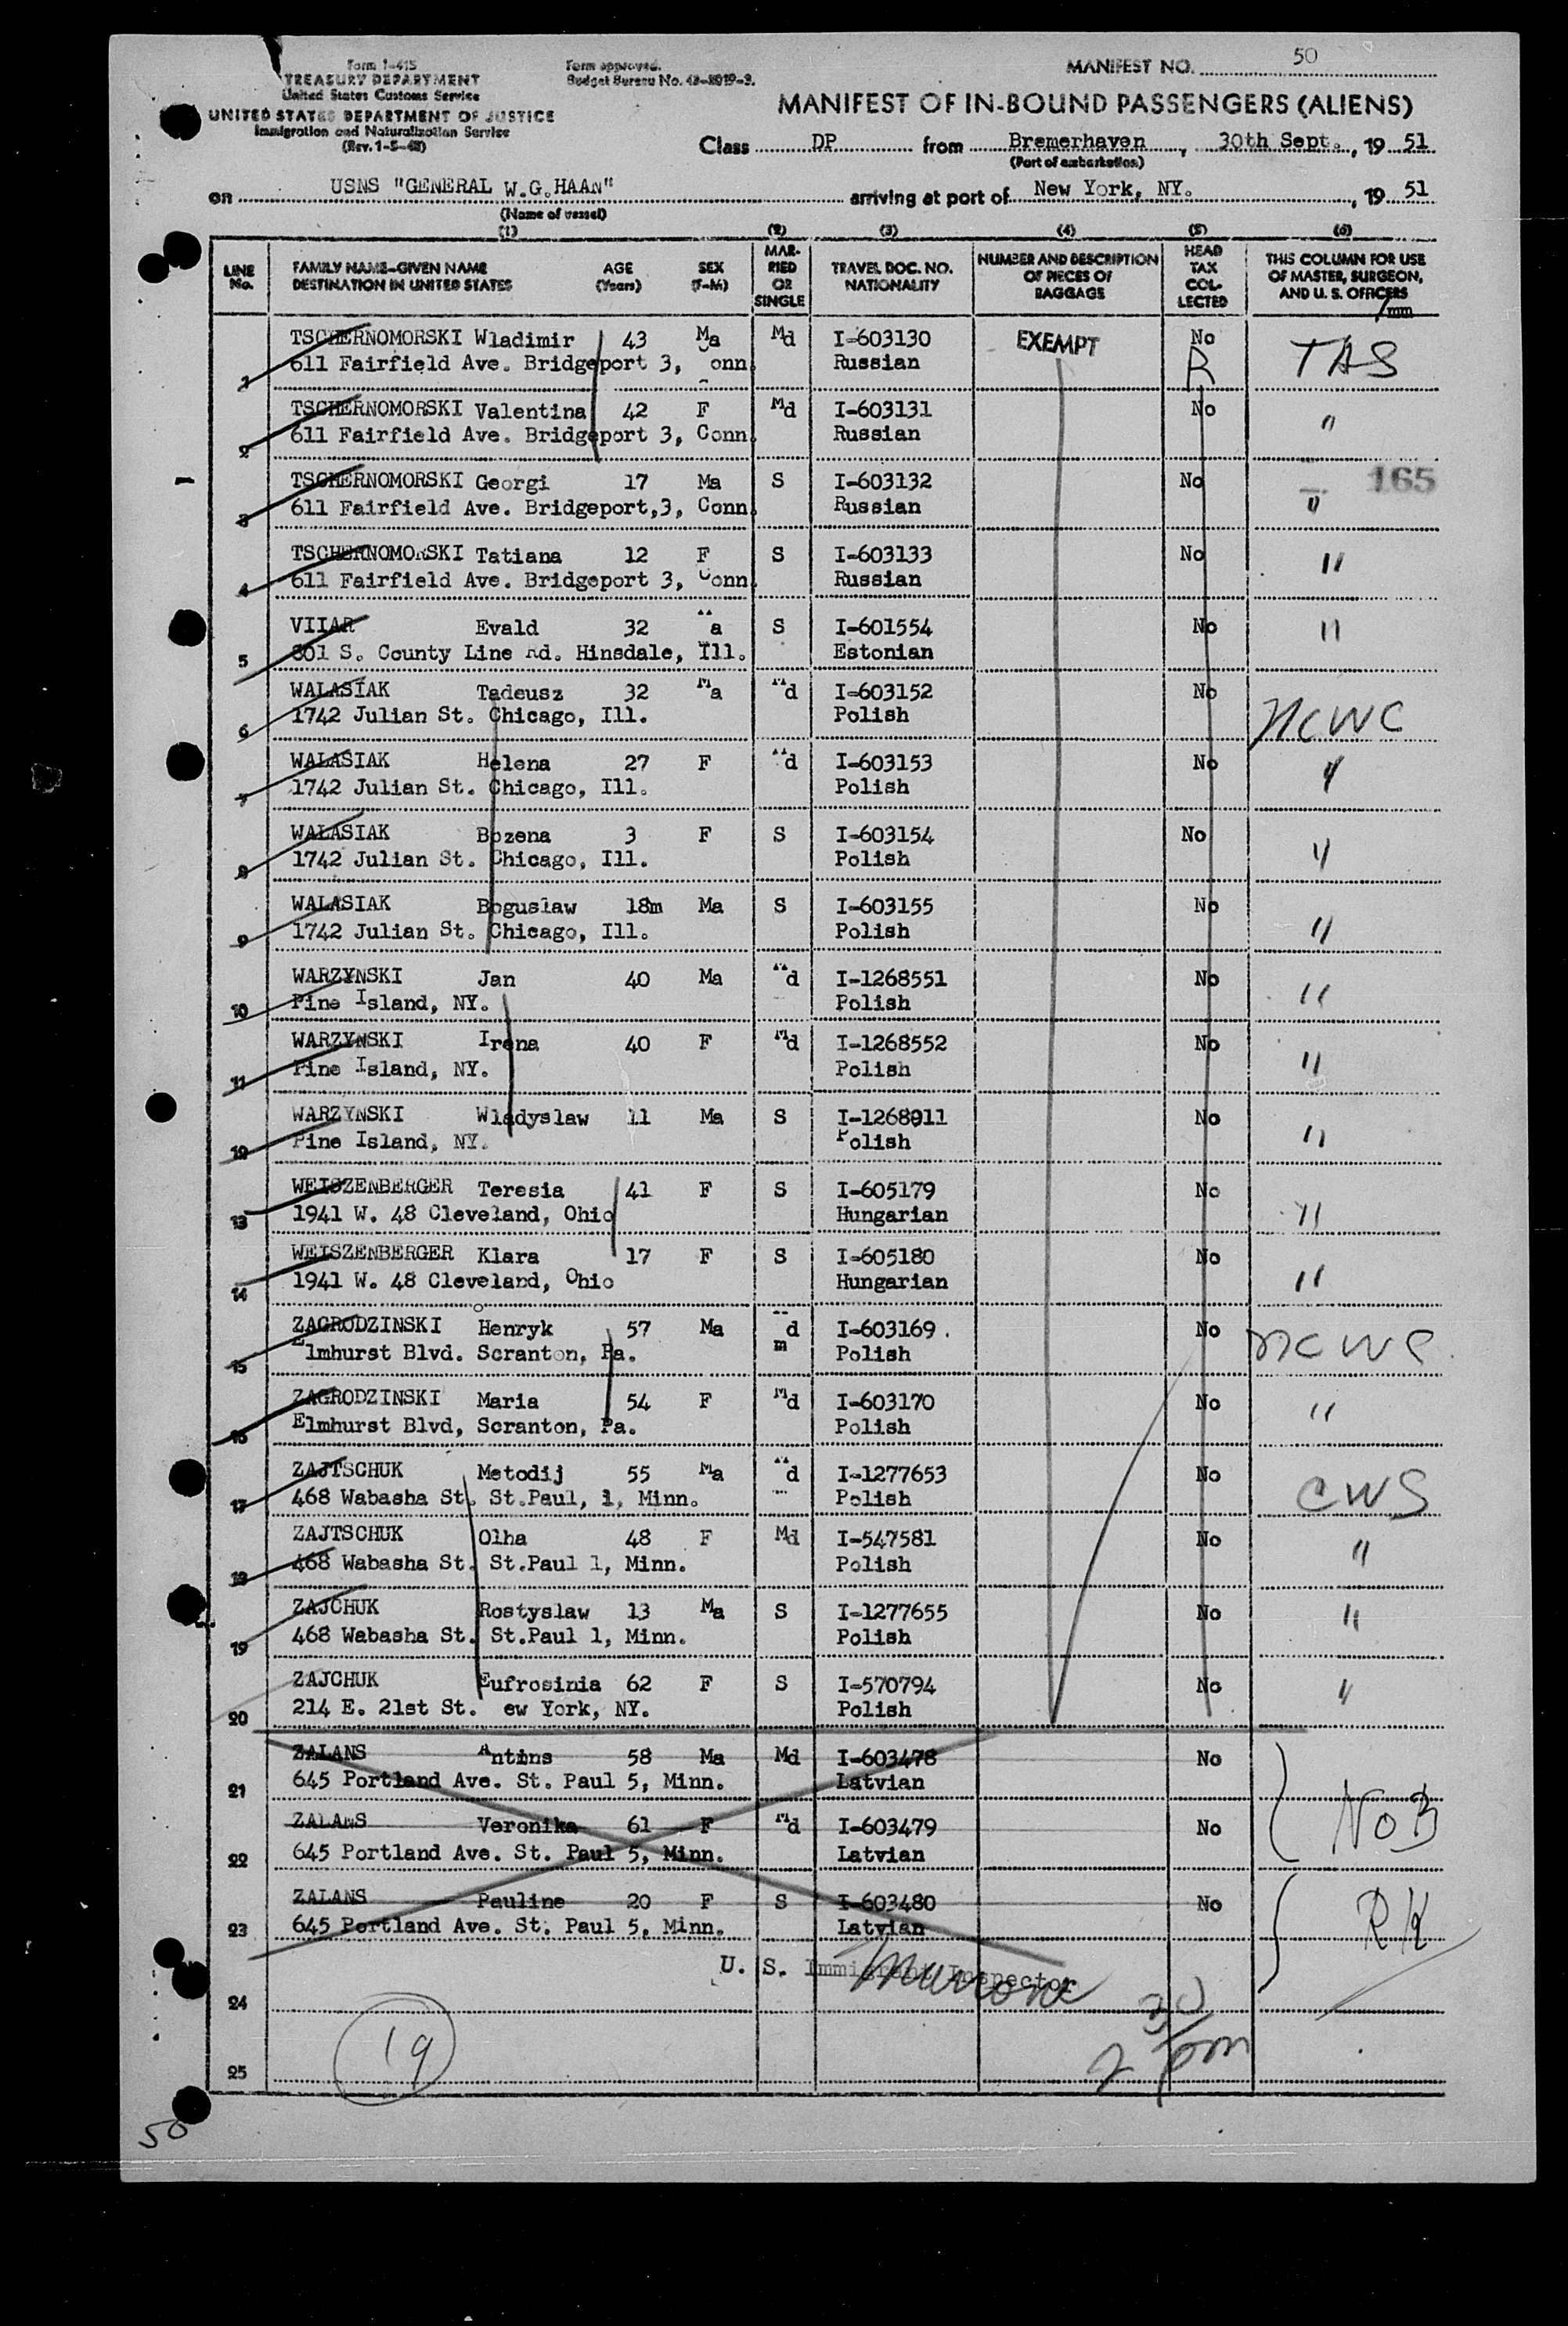 50
MANIFEST NO.
Form I-415
TREASURY DEPARTMENT
United States Customs Service
UNITED STATES DEPARTMENT OF JUSTICE
Immigration and Naturalization Service
(Rev. 1-5-48)
Form approved.
Budget Bureau No. 43-R019-3.
MANIFEST OF IN-BOUND PASSENGERS (ALIENS)
Class DP from Bremerhaven, 30th Sept., 19 51
(Port of embarkation)
on USNS "GENERAL W.G.HAAN" arriving at port of New York, NY., 19 51
(Name of vessel)
(1) (2) (3) (4) (5) (6)
LINE No. FAMILY NAME-GIVEN NAME DESTINATION IN UNITED STATES AGE (Years) SEX (F-M) MARRIED OR SINGLE TRAVEL DOC. NO. NATIONALITY NUMBER AND DESCRIPTION OF PIECES OF BAGGAGE HEAD TAX COLLECTED THIS COLUMN FOR USE OF MASTER, SURGEON, AND U. S. OFFICERS
mm
TSCHERNOMORSKI Wladimir 43 Ma Md I-603130 EXEMPT No TAS
1 611 Fairfield Ave. Bridgeport 3, Conn Russian R
TSCHERNOMORSKI Valentina 42 F Md I-603131 No "
2 611 Fairfield Ave. Bridgeport 3, Conn. Russian
TSCHERNOMORSKI Georgi 17 Ma S I-603132 No 165
3 611 Fairfield Ave. Bridgeport,3, Conn. Russian "
TSCHERNOMORSKI Tatiana 12 F S I-603133 No "
4 611 Fairfield Ave. Bridgeport 3, Conn. Russian
VIIAR Evald 32 Ma S I-601554 No "
5 801 S. County Line Rd. Hinsdale, Ill. Estonian
WALASIAK Tadeusz 32 Ma Md I-603152 No NCWC
6 1742 Julian St. Chicago, Ill. Polish
WALASIAK Helena 27 F Md I-603153 No "
7 1742 Julian St. Chicago, Ill. Polish
WALASIAK Bozena 3 F S I-603154 No "
8 1742 Julian St. Chicago, Ill. Polish
WALASIAK Boguslaw 18m Ma S I-603155 No "
9 1742 Julian St. Chicago, Ill. Polish
WARZYNSKI Jan 40 Ma Md I-1268551 No "
10 Pine Island, NY. Polish
WARZYNSKI Irena 40 F Md I-1268552 No "
11 Pine Island, NY. Polish
WARZYNSKI Wladyslaw 11 Ma S I-1268911 No "
12 Pine Island, NY. Polish
WEISZENBERGER Teresia 41 F S I-605179 No "
13 1941 W. 48 Cleveland, Ohio Hungarian
WEISZENBERGER Klara 17 F S I-605180 No "
14 1941 W. 48 Cleveland, Ohio Hungarian
ZAGRODZINSKI Henryk 57 Ma d I-603169. No NCWC
15 Elmhurst Blvd. Scranton, Pa. m Polish
ZAGRODZINSKI Maria 54 F Md I-603170 No "
16 Elmhurst Blvd, Scranton, Pa. Polish
ZAJTSCHUK Metodij 55 Ma Md I-1277653 No CWS
17 468 Wabasha St. St.Paul, 1, Minn. Polish
ZAJTSCHUK Olha 48 F Md I-547581 No "
18 468 Wabasha St. St.Paul 1, Minn. Polish
ZAJCHUK Rostyslaw 13 Ma S I-1277655 No "
19 468 Wabasha St. St.Paul 1, Minn. Polish
ZAJCHUK Eufrosinia 62 F S I-570794 No "
20 214 E. 21st St. ew York, NY. Polish
ZALANS Antins 58 Ma Md I-603478 No
21 645 Portland Ave. St. Paul 5, Minn. Latvian
ZALANS Veronika 61 F Md I-603479 No NoB
22 645 Portland Ave. St. Paul 5, Minn. Latvian
ZALANS Pauline 20 F S I-603480 No RK
23 645 Portland Ave. St. Paul 5, Minn. Latvian
U. S. Immigrant Inspector
24
19
2 30 pm
25
50